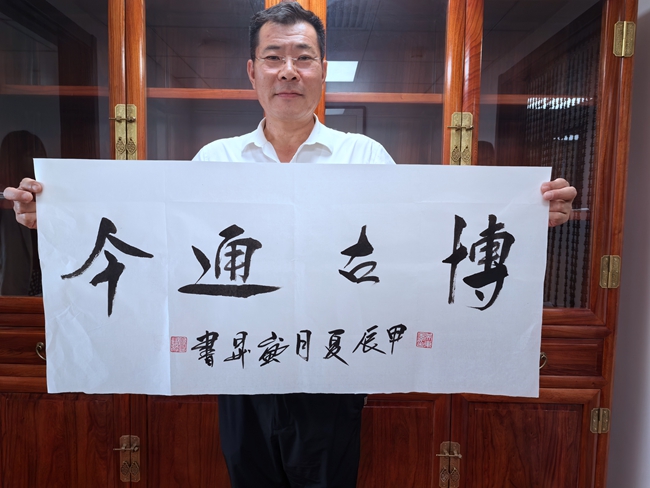 博古通今
甲辰夏月盛昇書